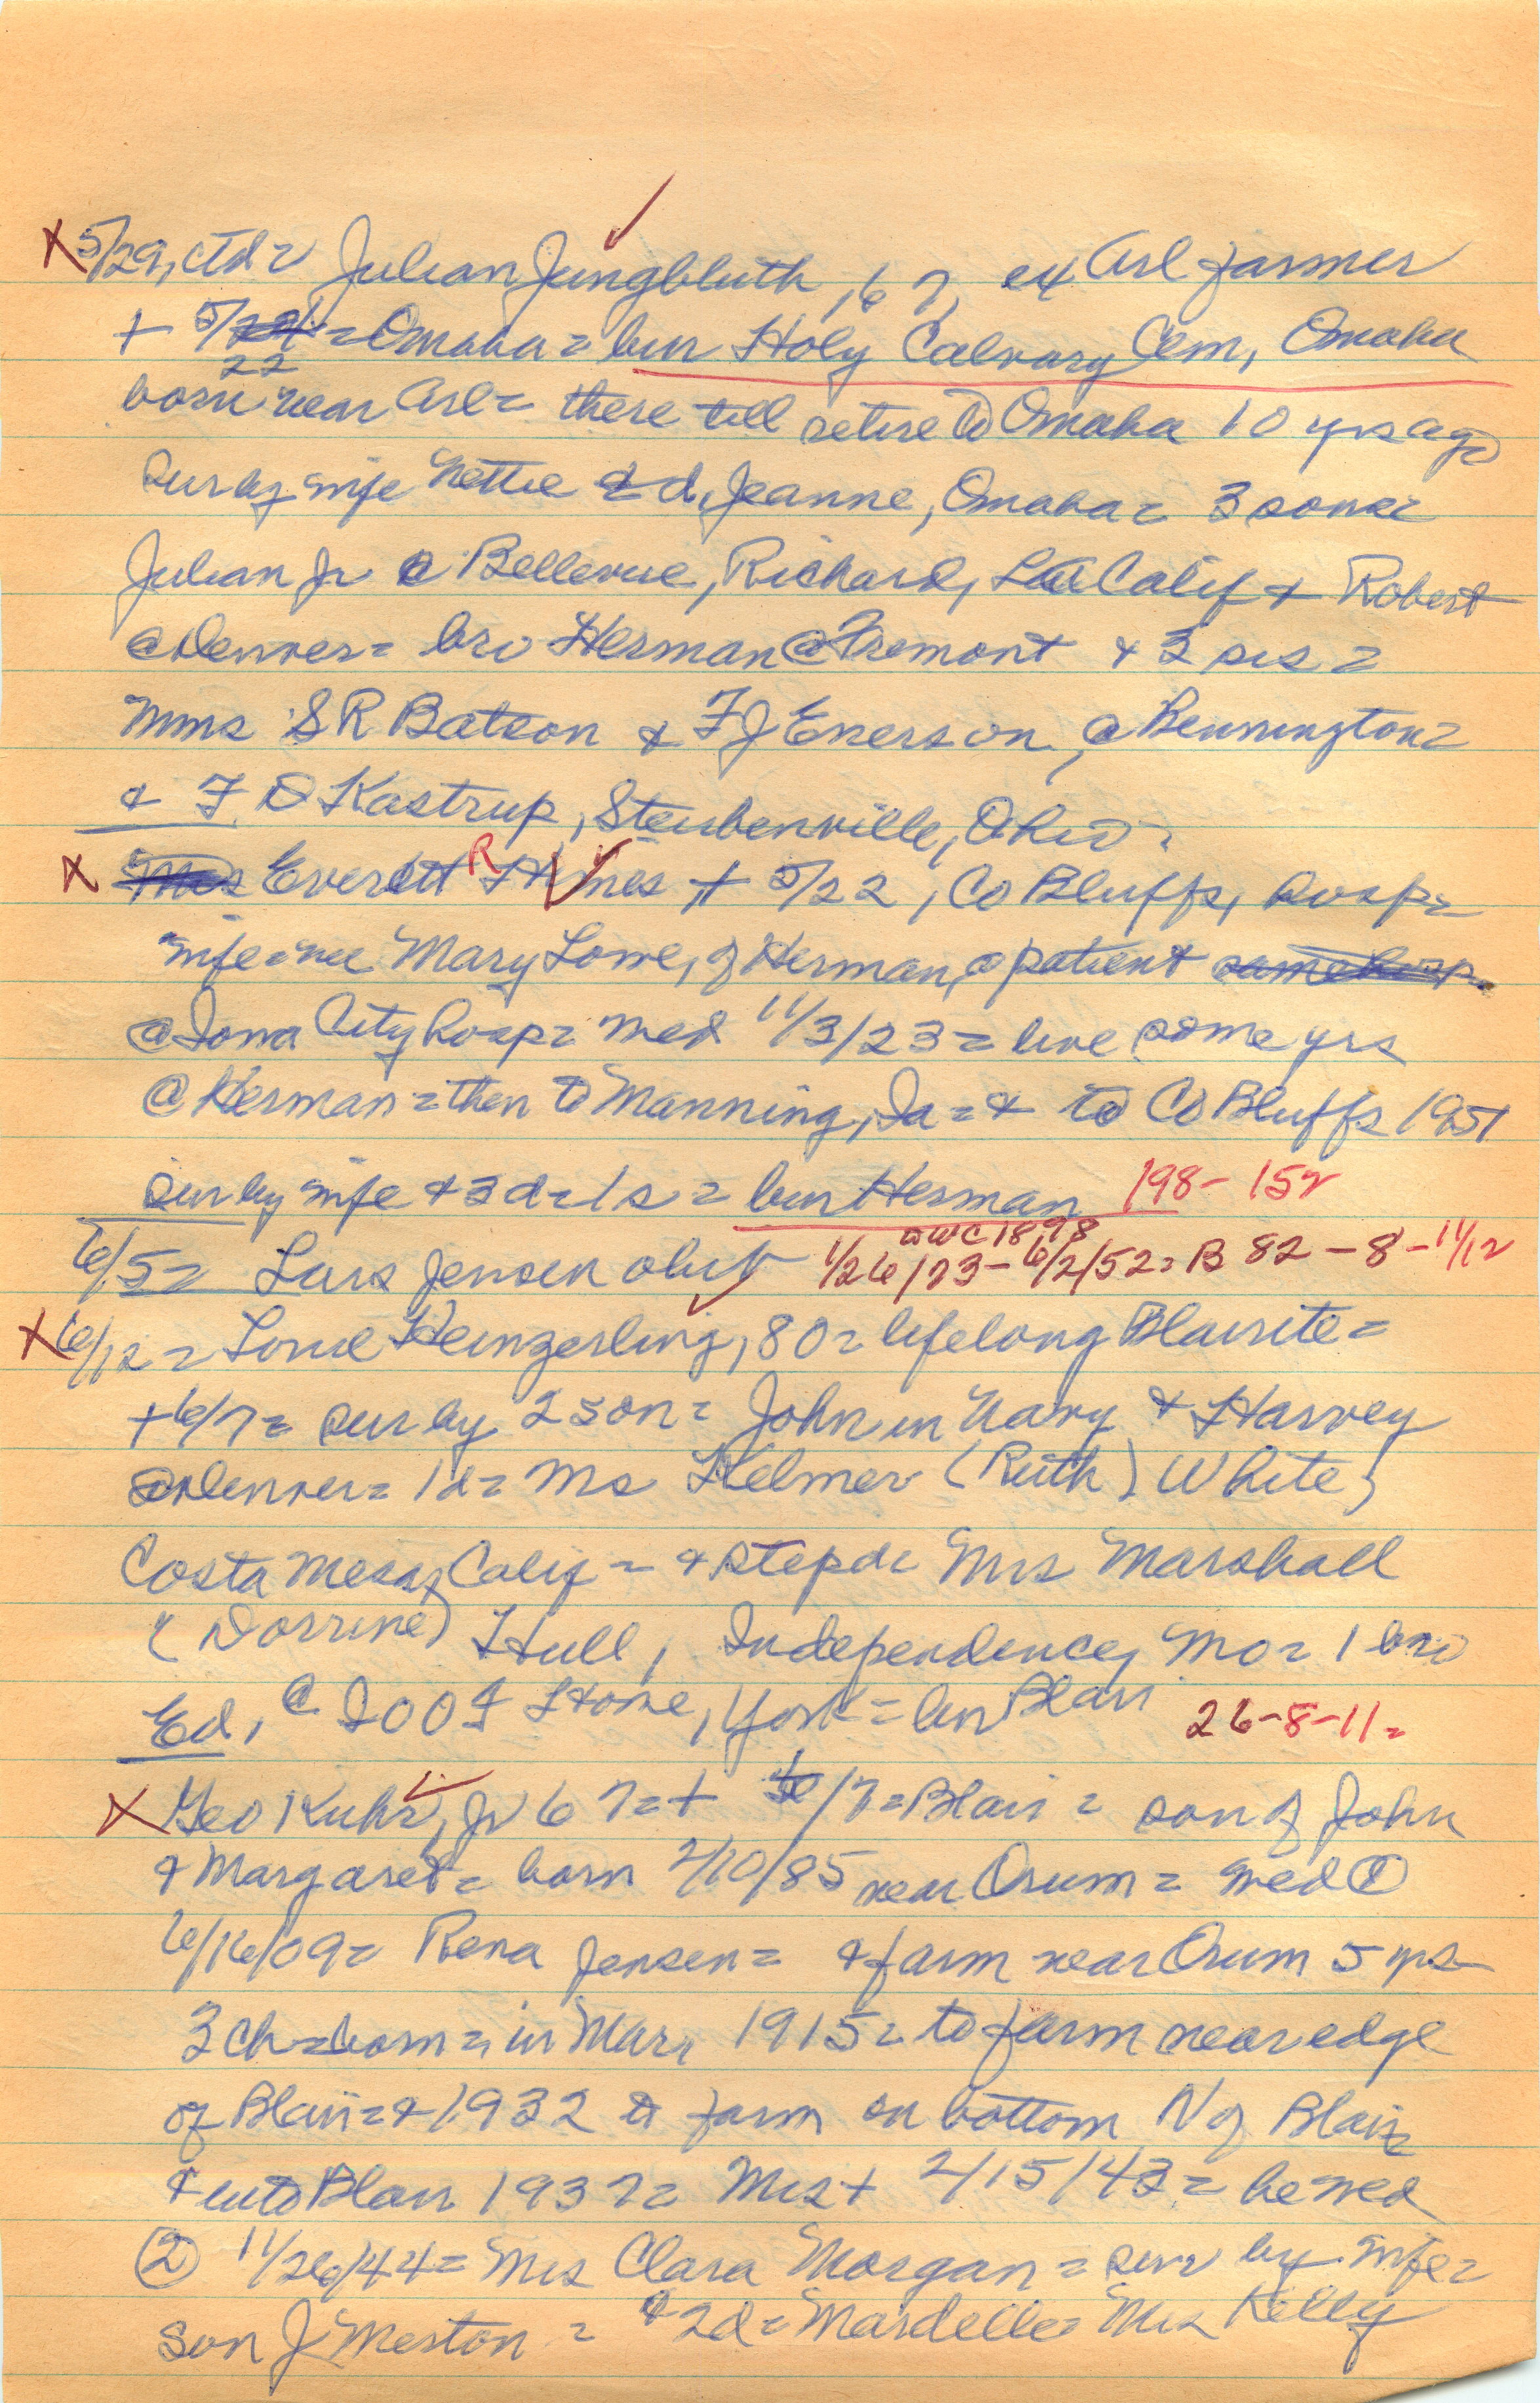 X 5/29, ctd = Julian Jungbluth, 67, ex Arl farmer
+ 5/22 = Omaha = bur Holy Calvary Cem, Omaha
born near Arl = there till retire to Omaha 10 yrs ago
Sur by wife Nettie & d, Jeanne, Omaha = 3 sons =
Julian Jr @ Bellevue, Richard, LA Calif + Robert
@ Denver = bro Herman @ Fremont & 3 sis =
Mms S R Batson & F J Enerson, @ Bennington =
& F D Kastrup, Steubenville, Ohio =
X Everett R Himes + 5/22, Co Bluffs, hosp =
wife = nee Mary Lowe, of Herman, a patient
@ Iowa City hosp = med 11/3/23 = live some yrs
@ Herman = then to Manning, Ia = & to Co Bluffs 1951
Sur by wife & 3 d = 1 s = bur Herman 198 - 15
6/5 = Lars Jensen obit WC 1898 1/26/73 - 6/2/52 = B 82 - 8 - 11/12
X 6/12 = Louie Heinzerling, 80 = lifelong Blairite =
+ 6/7 = sur by 2 son = John in Navy & Harvey
@ Denver = 1 d = Ms Helmer (Ruth) White,
Costa Mesa, Calif = & stepd = Mrs Marshall
(Dorrine) Hull, Independence, Mo = 1 bro
Ed, @ IOOF Home, York = bur Blair 26-8-11 =
X Geo Kuhr, Jr 67 = + 6/7 = Blair = son of John
& Margaret = born 2/10/85 near Orum = med ①
6/16/09 = Rena Jensen = & farm near Orum 5 yrs
3 ch = born = in Mar, 1915 = to farm near edge
of Blair = & 1932 to farm on bottom N of Blair
& into Blair 1937 = Mrs + 2/15/43 = he med
② 11/26/44 = Mrs Clara Morgan = surv by wife =
son J Meston = & 2 d = Mardelle = Mrs Kelly